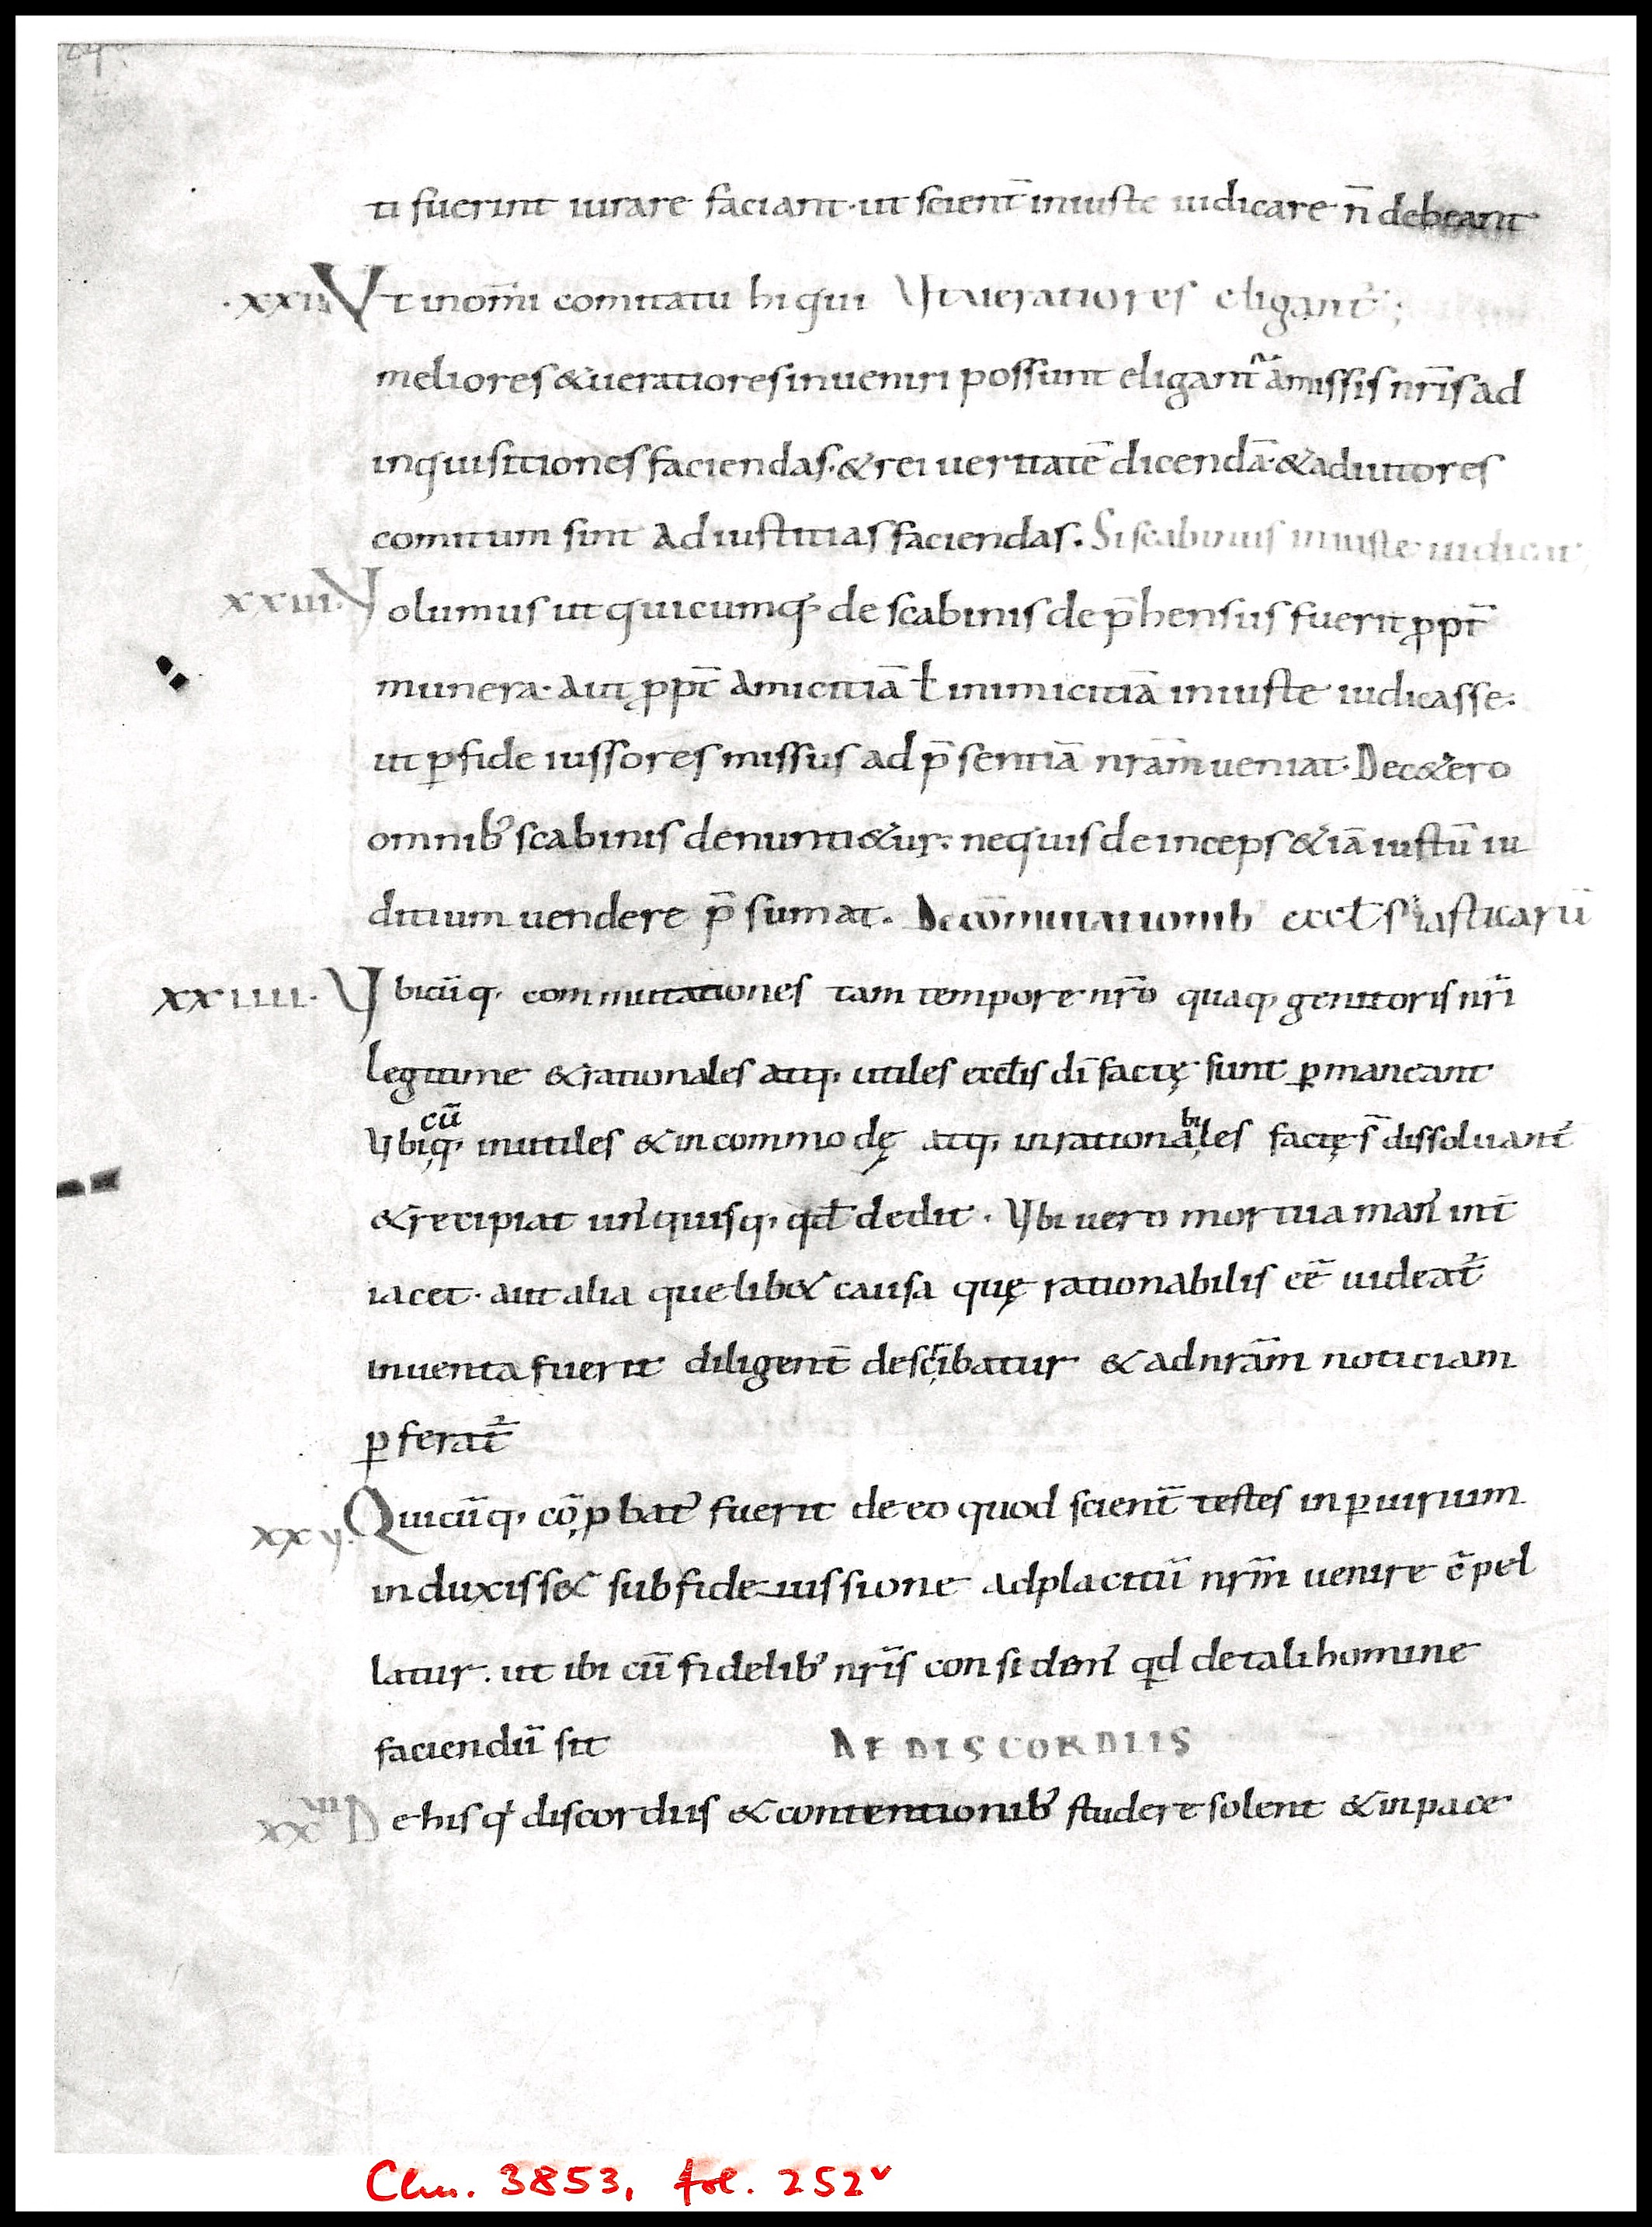 ti fuerint iurare faciant· ut scient̄ iniuste iudicare n̄ debeant
·xxii Vt in om̄i comitatu hi qui Vt veratiores eligant̉;
meliores & veratiores inveniri possunt eligant̉ a missis nr̄is ad
inquisitiones faciendas· & rei veritatē dicendā· & adiutores
comitum sint ad iustitias faciendas. Si scabinus iniuste iudicat
xxiii. Volumus ut quicumq; de scabinis dep̄hensus fuerit ꝓpt̄
munera· aut ꝓpt̄ amicitiā ɫ inimicitiā iniuste iudicasse·
ut ꝑ fideiussores missus ad p̄sentiā nr̄am veniat· De c&ero
omnib; scabinis denunti&ur· ne quis deinceps &iā iustū iu
ditium vendere p̄sumat. De cōmutationib eccɫsiasticarū
xxiiii. Vbicūq; commutationes tam tempore nr̄o quaq; genitoris nr̄i
legitime & rationales atq; utiles eccɫis dī factę sunt ꝑmaneant
cū
Vbiq; inutiles & incommodę atq; inrationabiles factę s̄ dissoluant̉
& recipiat un̉quisq; qđ dedit. Vbi vero mortua man̉ int̄
iacet· aut alia quelib& causa quę rationabilis eē videat̉
inventa fuerit diligent̄ describatur & ad nr̄am noticiam
ꝑferat̉
xxv. Quicūq; cōꝓbat̉ fuerit de eo quod scient̄ testes in ꝑiurium
induxiss& sub fideiussione ad placitū nr̄m venire cōpel
latur· ut ibi cū fidelib; nr̄is consideret̉ qd de tali homine
faciendū sit DE DISCORDIIS
xxvii De his q̉ discordiis & contentionib; studere solent & in pace
Clm. 3853, fol. 252v